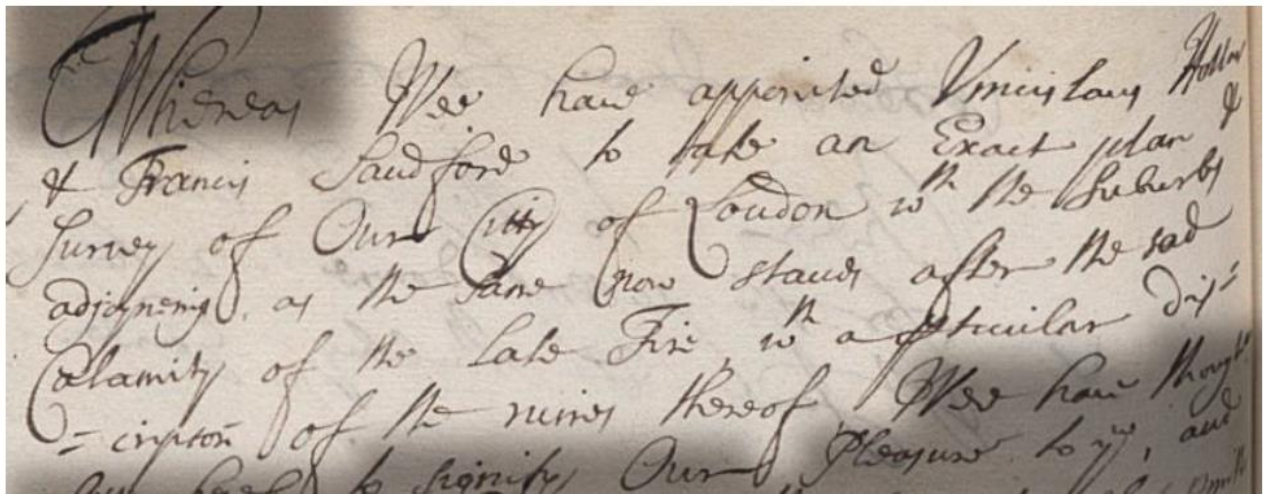 Whereas Wee have appointed Vinceslaus Hollar
& Francis Sandford to take an Exact plan &
Survey of Our Citty of London wth the Suburbs
adjoyneing, as the same now stands after the sad
Calamity of the late Fire, wth a pticular dis=
=cription of the ruines thereof Wee have thought
to signify Our Pleasure to you, and